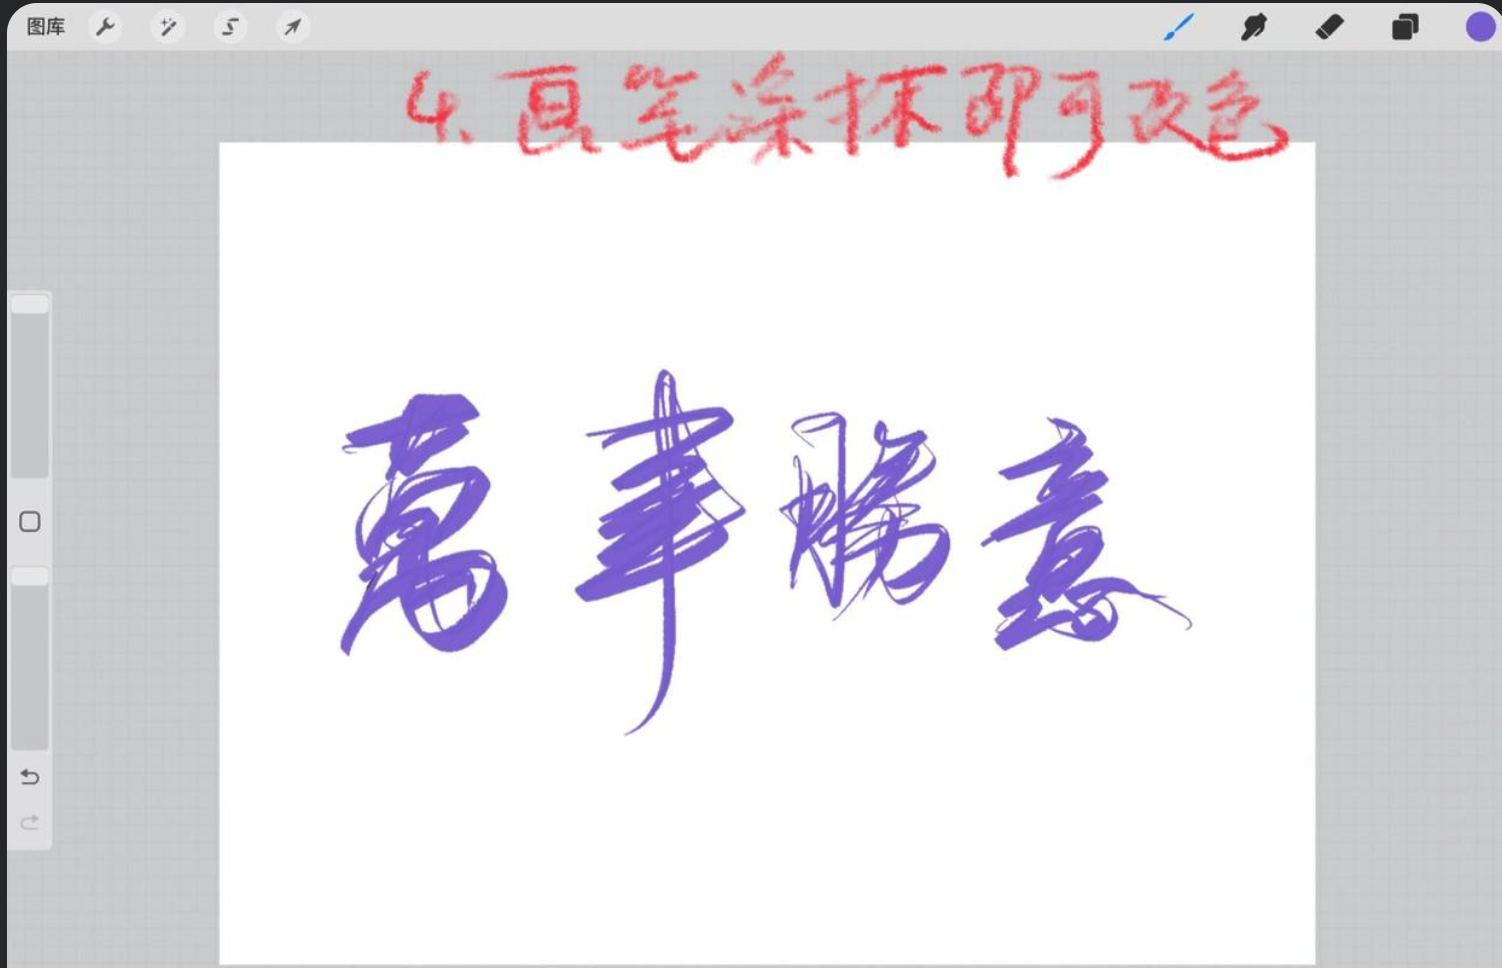 图库
4.画笔涂抹即可改色
萬事勝意